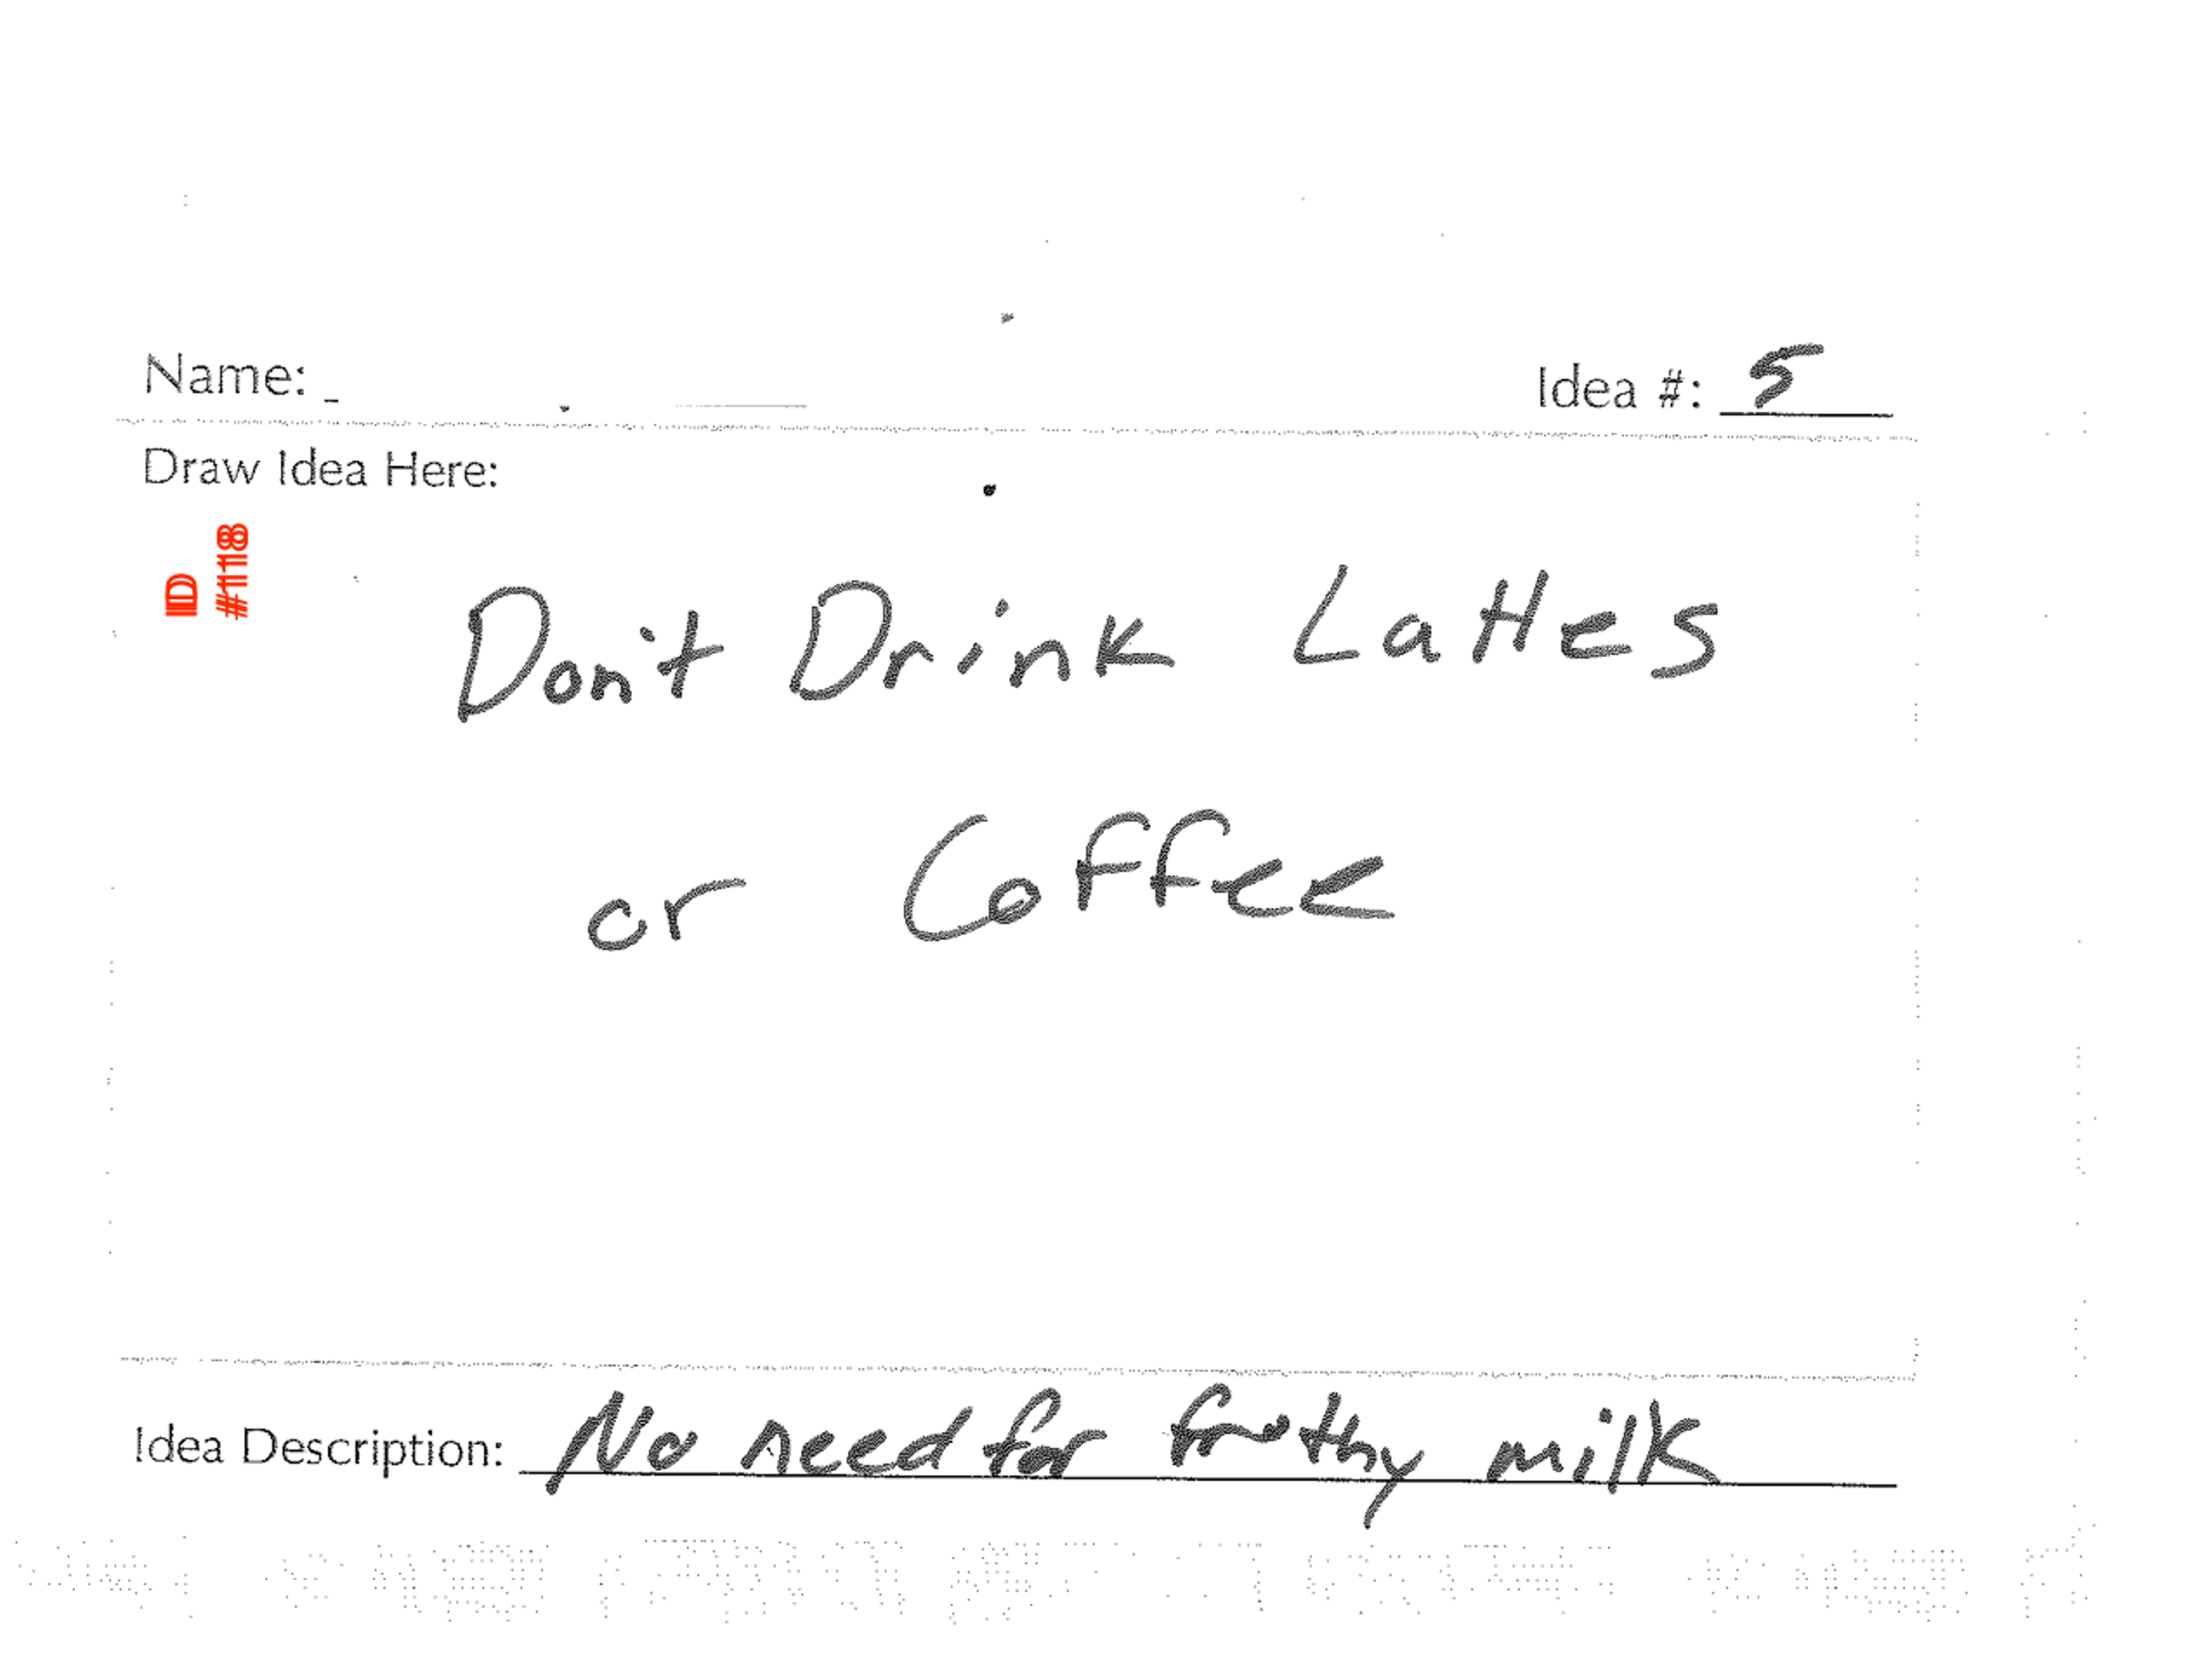 Name:
Idea #: 5
Draw Idea Here:
ID
#1118
Don't Drink Lattes
or Coffee
Idea Description: No need for frothy milk